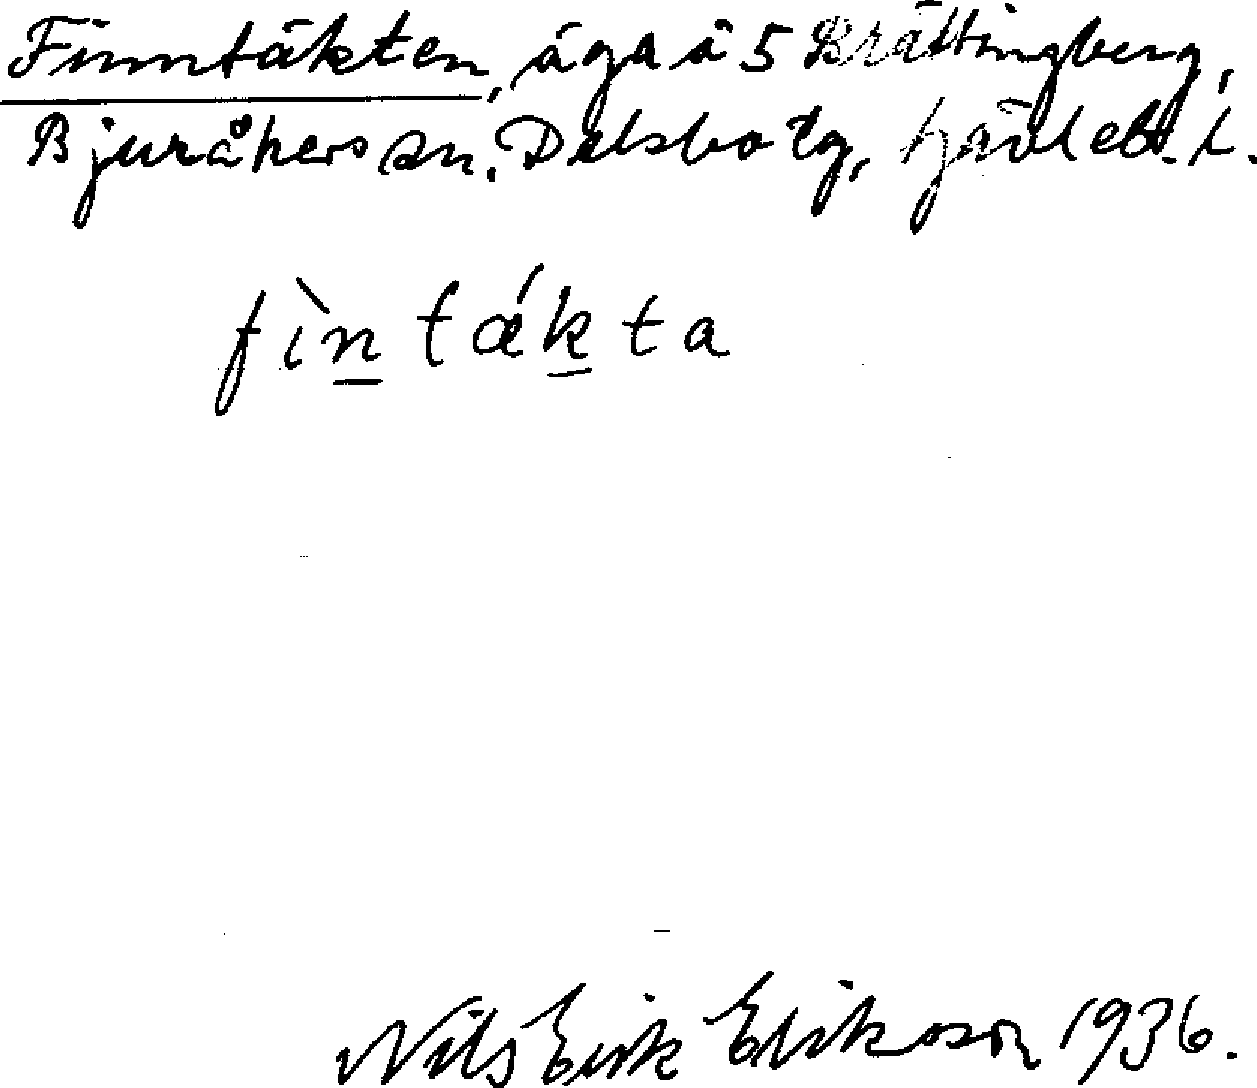 Finntäkten, äga å 5 Krättingberg,
Bjuråkers sn. Delsbo tg, Gävlebs. l.
fìn tákta
Nils Erik Erikson 1936.